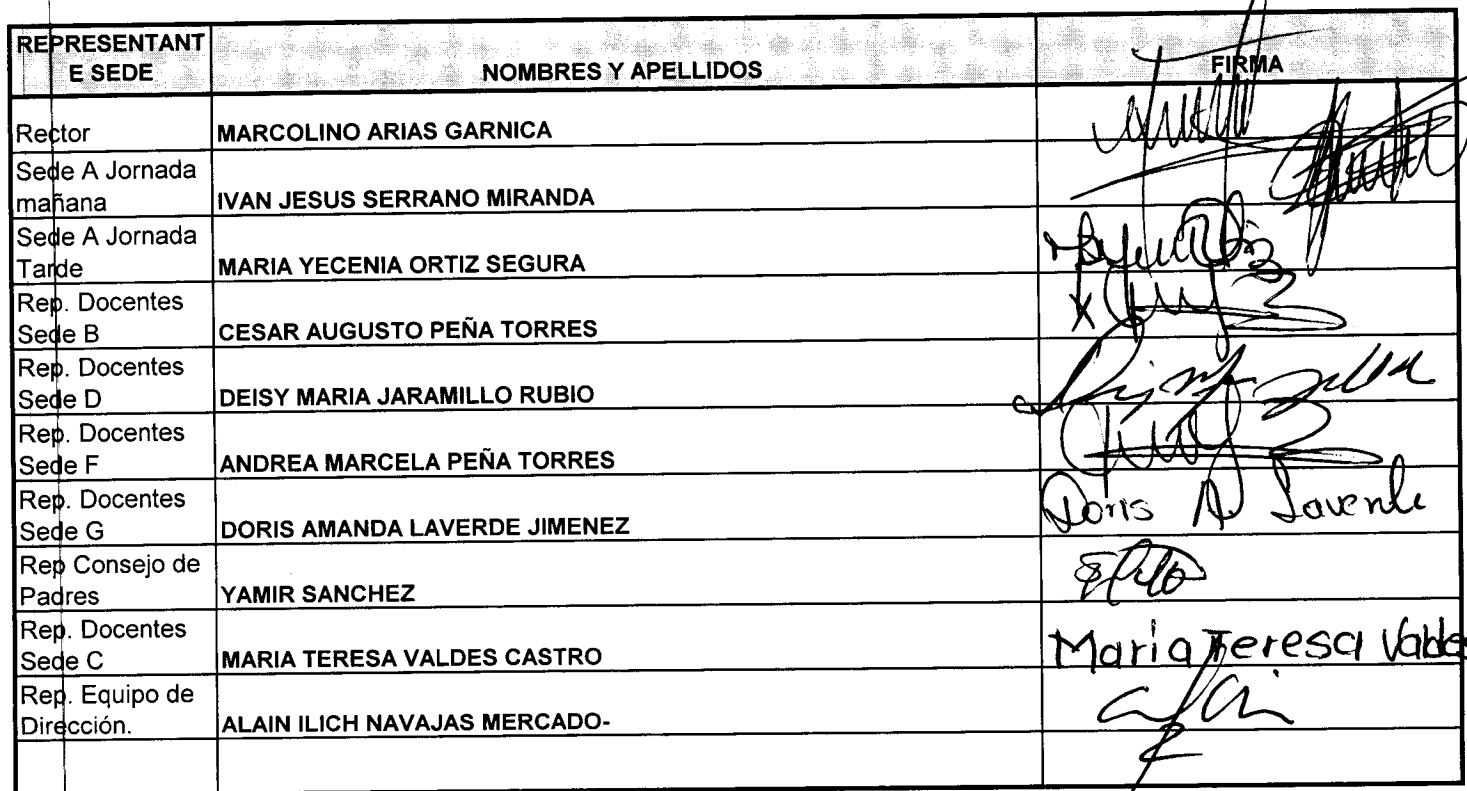 REPRESENTANT
E SEDE
NOMBRES Y APELLIDOS
FIRMA
Rector
MARCOLINO ARIAS GARNICA
Sede A Jornada
mañana
IVAN JESUS SERRANO MIRANDA
Sede A Jornada
Tarde
MARIA YECENIA ORTIZ SEGURA
Rep. Docentes
Sede B
CESAR AUGUSTO PEÑA TORRES
Rep. Docentes
Sede D
DEISY MARIA JARAMILLO RUBIO
Rep. Docentes
Sede F
ANDREA MARCELA PEÑA TORRES
Rep. Docentes
Sede G
DORIS AMANDA LAVERDE JIMENEZ
Doris A Laverde
Rep Consejo de
Padres
YAMIR SANCHEZ
Rep. Docentes
Sede C
MARIA TERESA VALDES CASTRO
Maria Teresa Valdes
Rep. Equipo de
Dirección.
ALAIN ILICH NAVAJAS MERCADO-